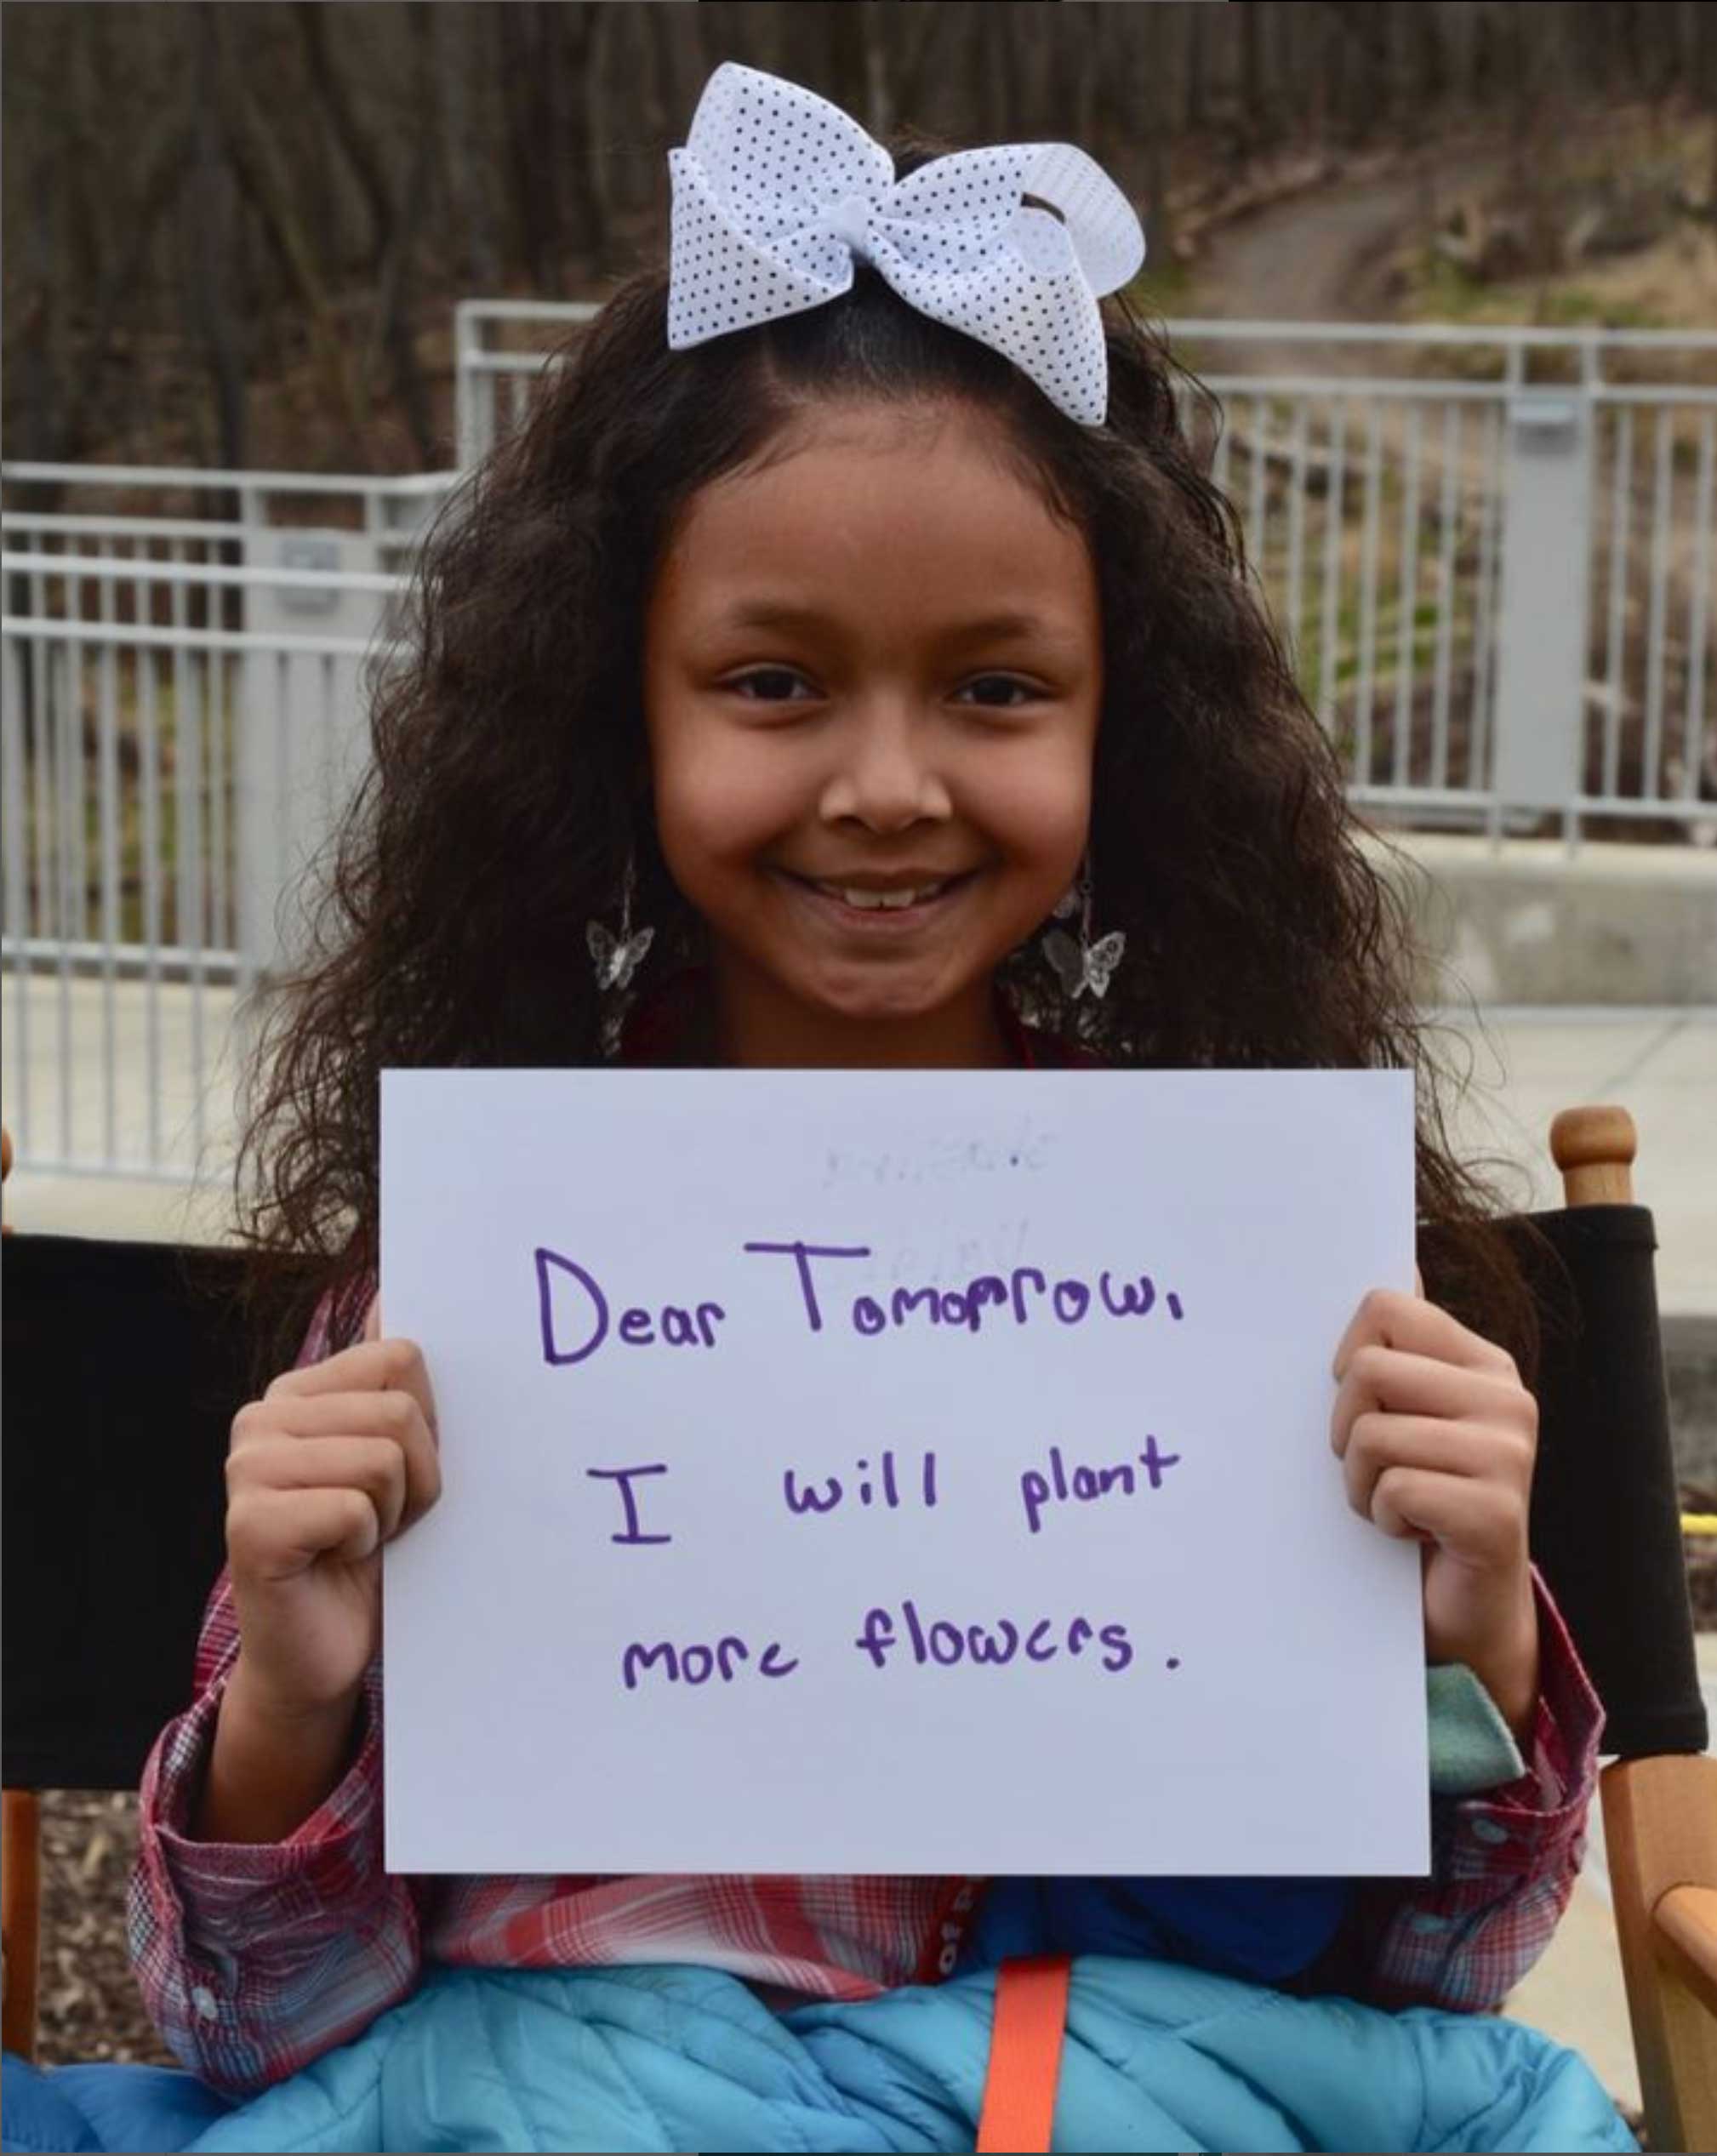 Dear Tomorrow,
I will plant
more flowers.
of